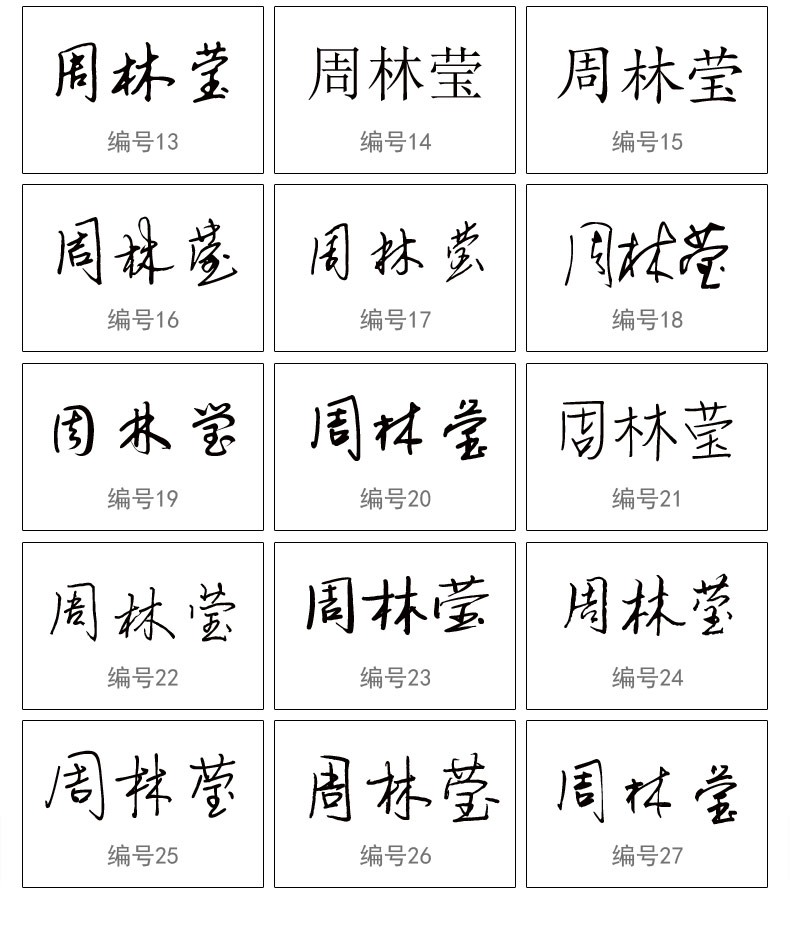 周林莹
编号13
周林莹
编号14
周林莹
编号15
周林莹
编号16
周林莹
编号17
周林莹
编号18
周林莹
编号19
周林莹
编号20
周林莹
编号21
周林莹
编号22
周林莹
编号23
周林莹
编号24
周林莹
编号25
周林莹
编号26
周林莹
编号27